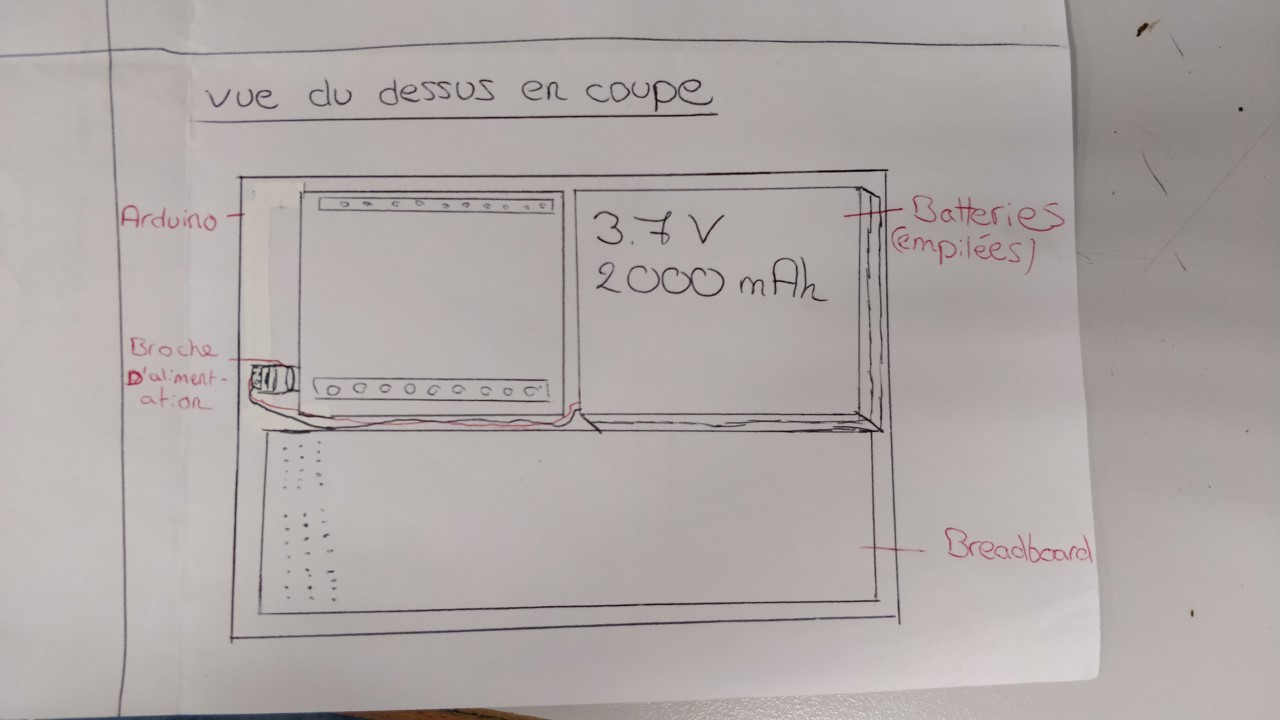 vue du dessus en coupe
Arduino
3.7 V
2000 mAh
Batteries
(empilées)
Broche
D'aliment-
ation
Breadboard